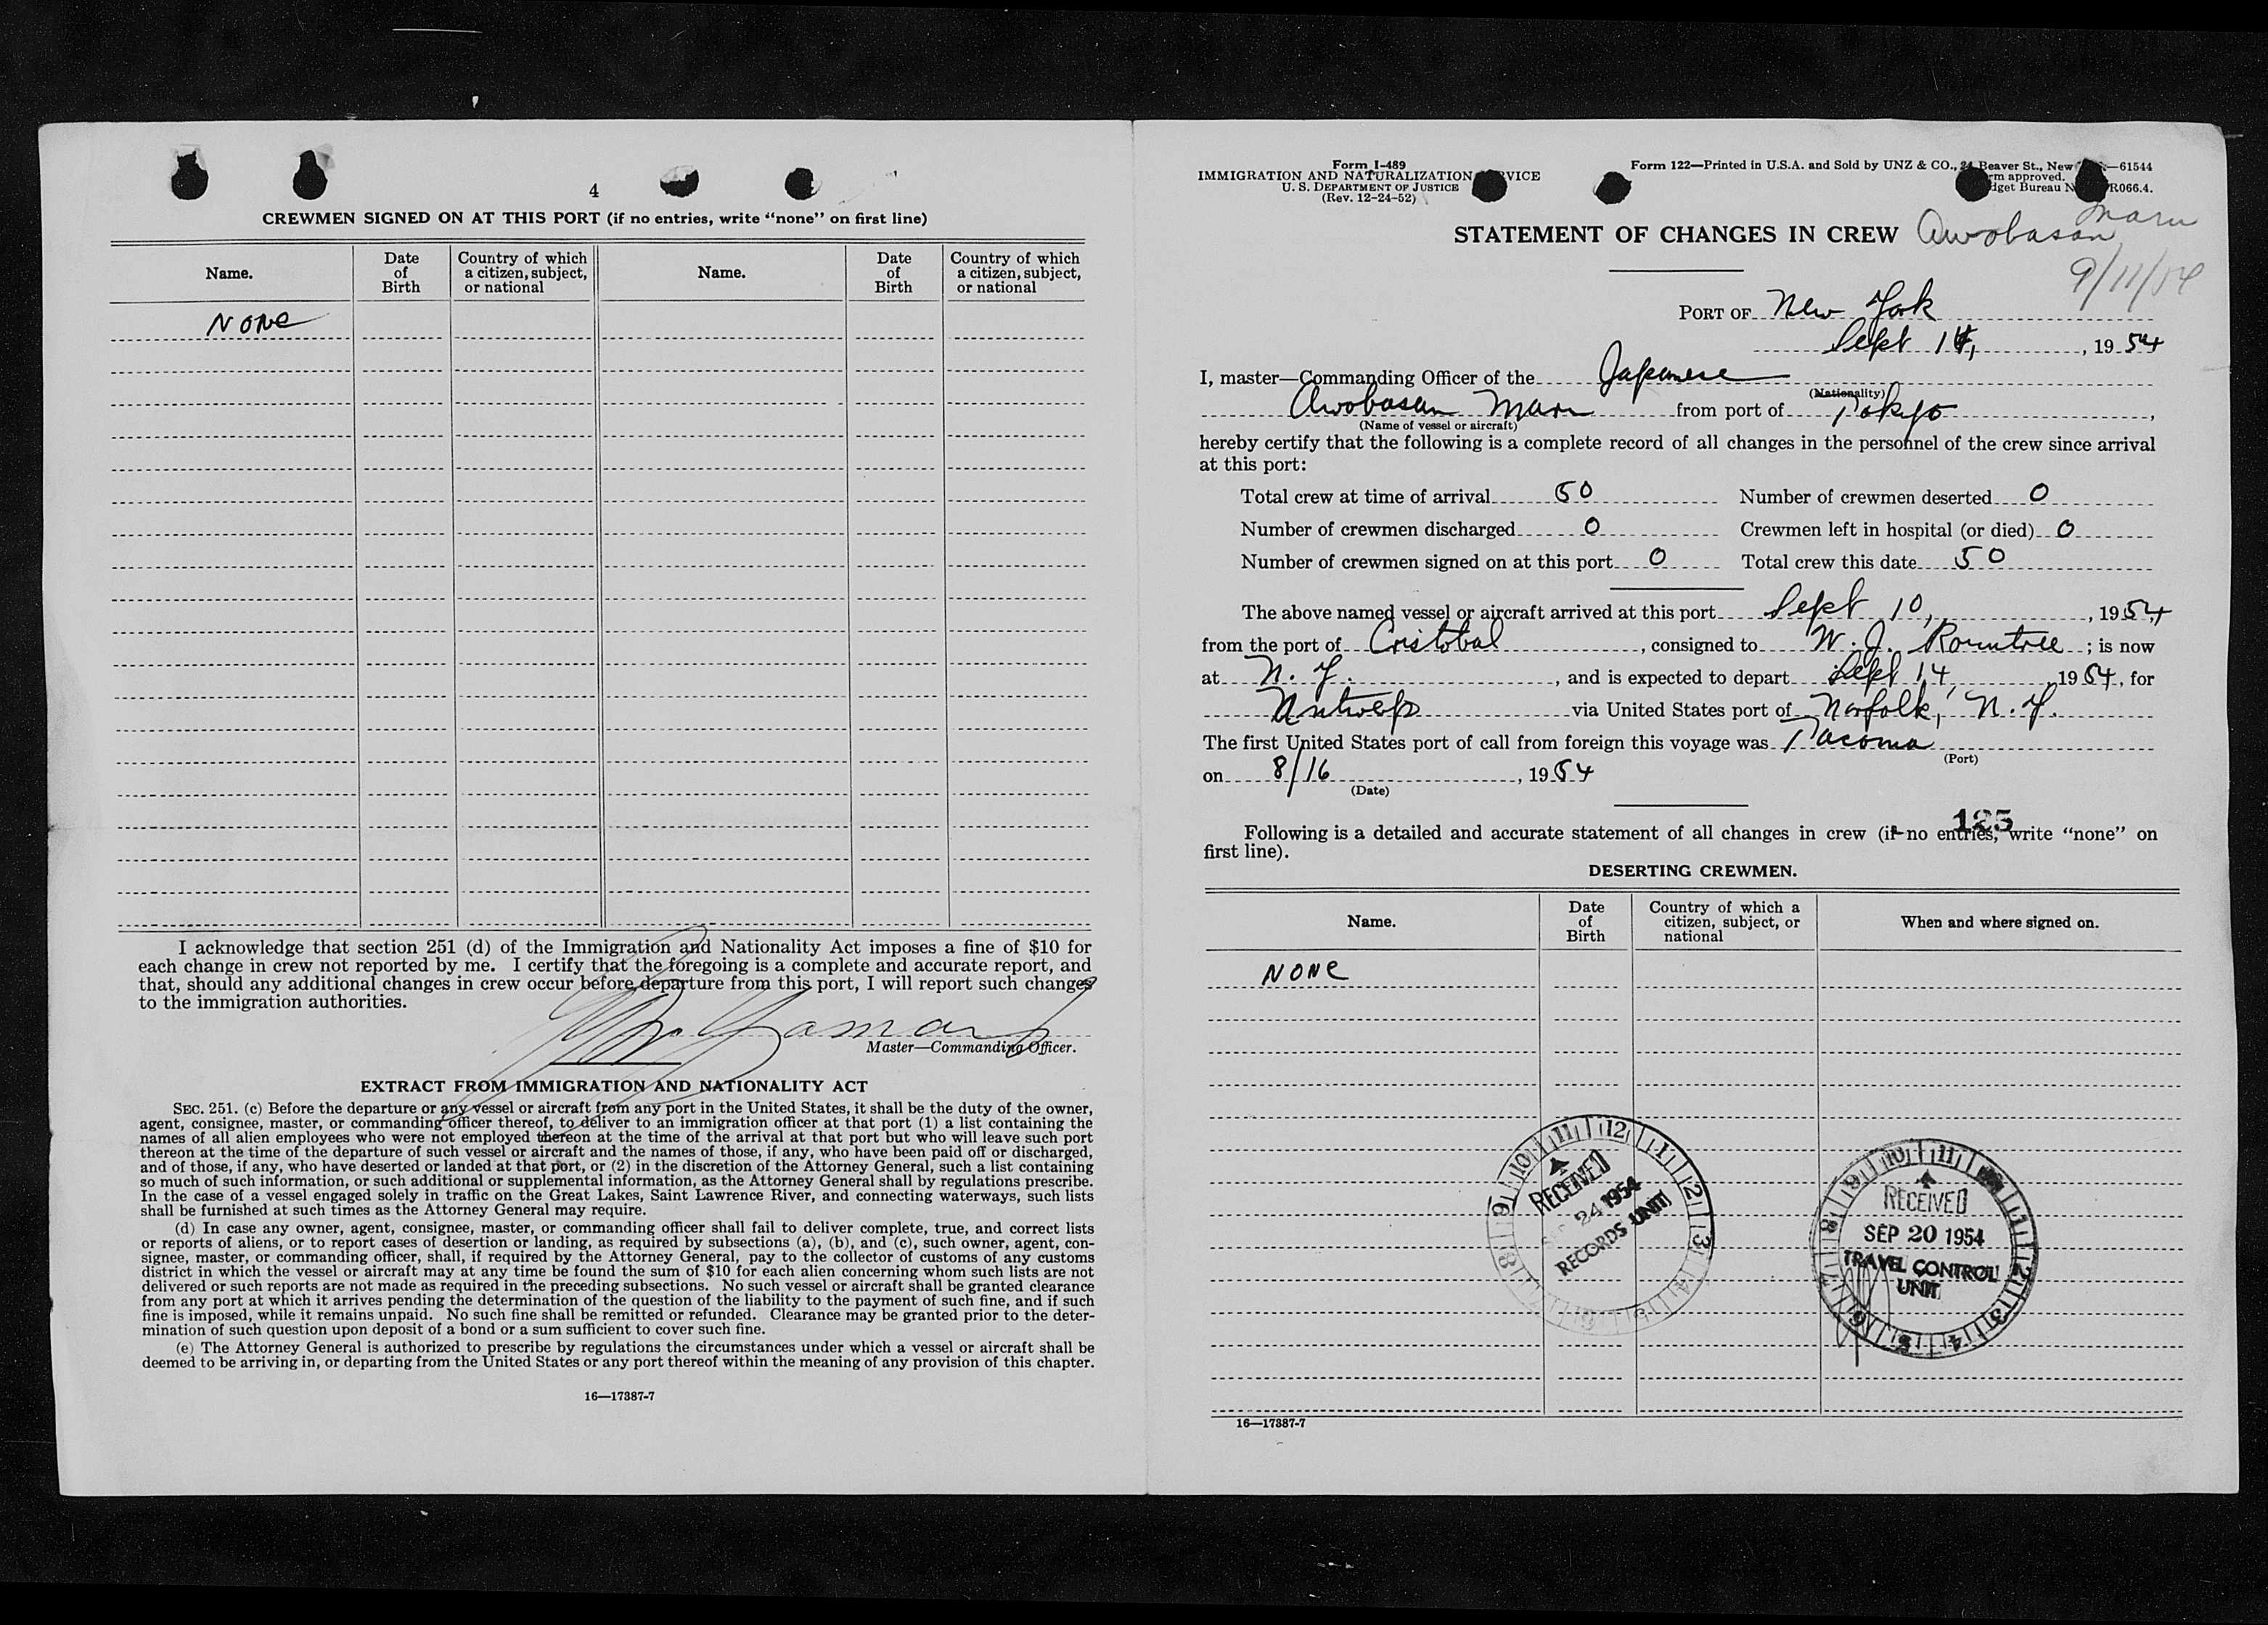 4
CREWMEN SIGNED ON AT THIS PORT (if no entries, write “none” on first line)
Name.
Date of Birth
Country of which a citizen, subject, or national
Name.
Date of Birth
Country of which a citizen, subject, or national
None
I acknowledge that section 251 (d) of the Immigration and Nationality Act imposes a fine of $10 for
each change in crew not reported by me. I certify that the foregoing is a complete and accurate report, and
that, should any additional changes in crew occur before departure from this port, I will report such changes
to the immigration authorities.
Master—Commanding Officer.
EXTRACT FROM IMMIGRATION AND NATIONALITY ACT
SEC. 251. (c) Before the departure or any vessel or aircraft from any port in the United States, it shall be the duty of the owner,
agent, consignee, master, or commanding officer thereof, to deliver to an immigration officer at that port (1) a list containing the
names of all alien employees who were not employed thereon at the time of the arrival at that port but who will leave such port
thereon at the time of the departure of such vessel or aircraft and the names of those, if any, who have been paid off or discharged,
and of those, if any, who have deserted or landed at that port, or (2) in the discretion of the Attorney General, such a list containing
so much of such information, or such additional or supplemental information, as the Attorney General shall by regulations prescribe.
In the case of a vessel engaged solely in traffic on the Great Lakes, Saint Lawrence River, and connecting waterways, such lists
shall be furnished at such times as the Attorney General may require.
(d) In case any owner, agent, consignee, master, or commanding officer shall fail to deliver complete, true, and correct lists
or reports of aliens, or to report cases of desertion or landing, as required by subsections (a), (b), and (c), such owner, agent, con-
signee, master, or commanding officer, shall, if required by the Attorney General, pay to the collector of customs of any customs
district in which the vessel or aircraft may at any time be found the sum of $10 for each alien concerning whom such lists are not
delivered or such reports are not made as required in the preceding subsections. No such vessel or aircraft shall be granted clearance
from any port at which it arrives pending the determination of the question of the liability to the payment of such fine, and if such
fine is imposed, while it remains unpaid. No such fine shall be remitted or refunded. Clearance may be granted prior to the deter-
mination of such question upon deposit of a bond or a sum sufficient to cover such fine.
(e) The Attorney General is authorized to prescribe by regulations the circumstances under which a vessel or aircraft shall be
deemed to be arriving in, or departing from the United States or any port thereof within the meaning of any provision of this chapter.
16—17387-7
Form I-489
IMMIGRATION AND NATURALIZATION VICE
U. S. DEPARTMENT OF JUSTICE
(Rev. 12-24-52)
Form 122—Printed in U.S.A. and Sold by UNZ & CO., 24 Beaver St., New —61544
rm approved.
dget Bureau N R066.4.
STATEMENT OF CHANGES IN CREW Awobasan Maru
9/11/54
PORT OF New York
Sept 14, 1954
I, master—Commanding Officer of the Japanese
(Nationality)
Awobasan Maru from port of Tokyo,
(Name of vessel or aircraft)
hereby certify that the following is a complete record of all changes in the personnel of the crew since arrival
at this port:
Total crew at time of arrival 50 Number of crewmen deserted 0
Number of crewmen discharged 0 Crewmen left in hospital (or died) 0
Number of crewmen signed on at this port 0 Total crew this date 50
The above named vessel or aircraft arrived at this port Sept 10, 1954
from the port of Cristobal, consigned to W. J. Rountree; is now
at N. Y., and is expected to depart Sept 14, 1954, for
Antwerp via United States port of Norfolk, N. Y.
The first United States port of call from foreign this voyage was Tacoma
(Port)
on 8/16, 1954
(Date)
125
Following is a detailed and accurate statement of all changes in crew (if no entries, write “none” on
first line).
DESERTING CREWMEN.
Name.
Date of Birth
Country of which a citizen, subject, or national
When and where signed on.
None
RECEIVED
SEP 24 1954
RECORDS UNIT
RECEIVED
SEP 20 1954
TRAVEL CONTROL
UNIT
16—17387-7